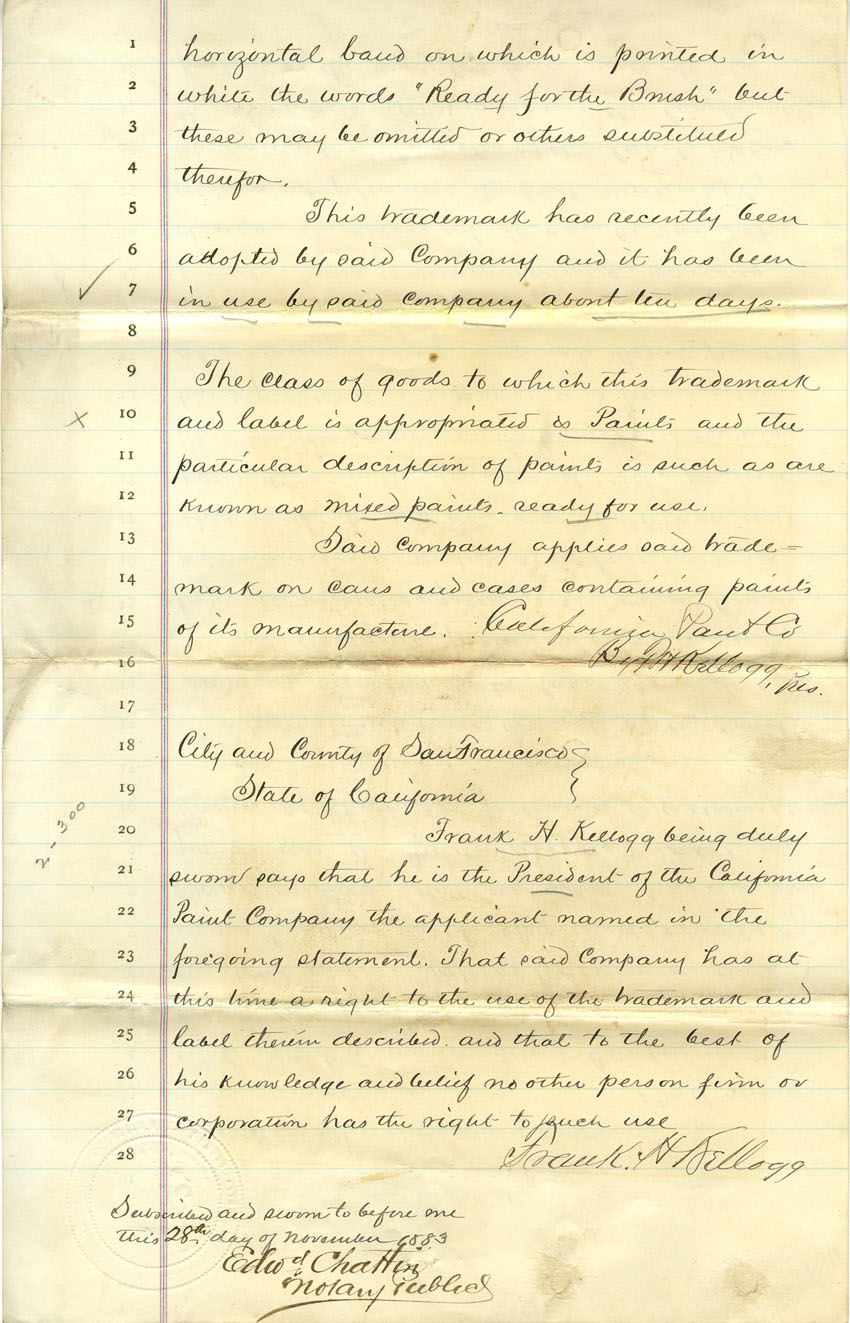 1 horizontal band on which is printed in
2 white the words "Ready for the Brush" but
3 these may be omitted or others substituted
4 therefor.
5 This trademark has recently been
6 adopted by said Company and it has been
7 in use by said company about ten days.
8
9 The class of goods to which this trademark
10 and label is appropriated is Paints and the
11 particular description of paints is such as are
12 known as mixed paints. ready for use.
13 Said company applies said trade=
14 mark on cans and cases containing paints
15 of its manufacture. California Paint Co
16 By F H Kellogg, Pres.
17
18 City and County of San Francisco
19 State of California
2-300
20 Frank H. Kellogg being duly
21 sworn says that he is the President of the California
22 Paint Company the applicant named in the
23 foregoing statement. That said Company has at
24 this time a right to the use of the trademark and
25 label therein described. and that to the best of
26 his knowledge and belief no other person firm or
27 corporation has the right to such use
28 Frank. H Kellogg
Subscribed and sworn to before me
this 28th day of November 1883
Edwd Chattin
Notary Public